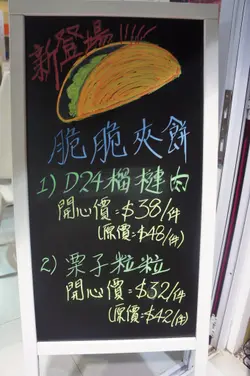 新登場!!!!
脆脆夾餅
1) D24榴槤肉
開心價=$38/件
(原價=$48/件)
2) 栗子粒粒
開心價=$32/件
(原價=$42/件)